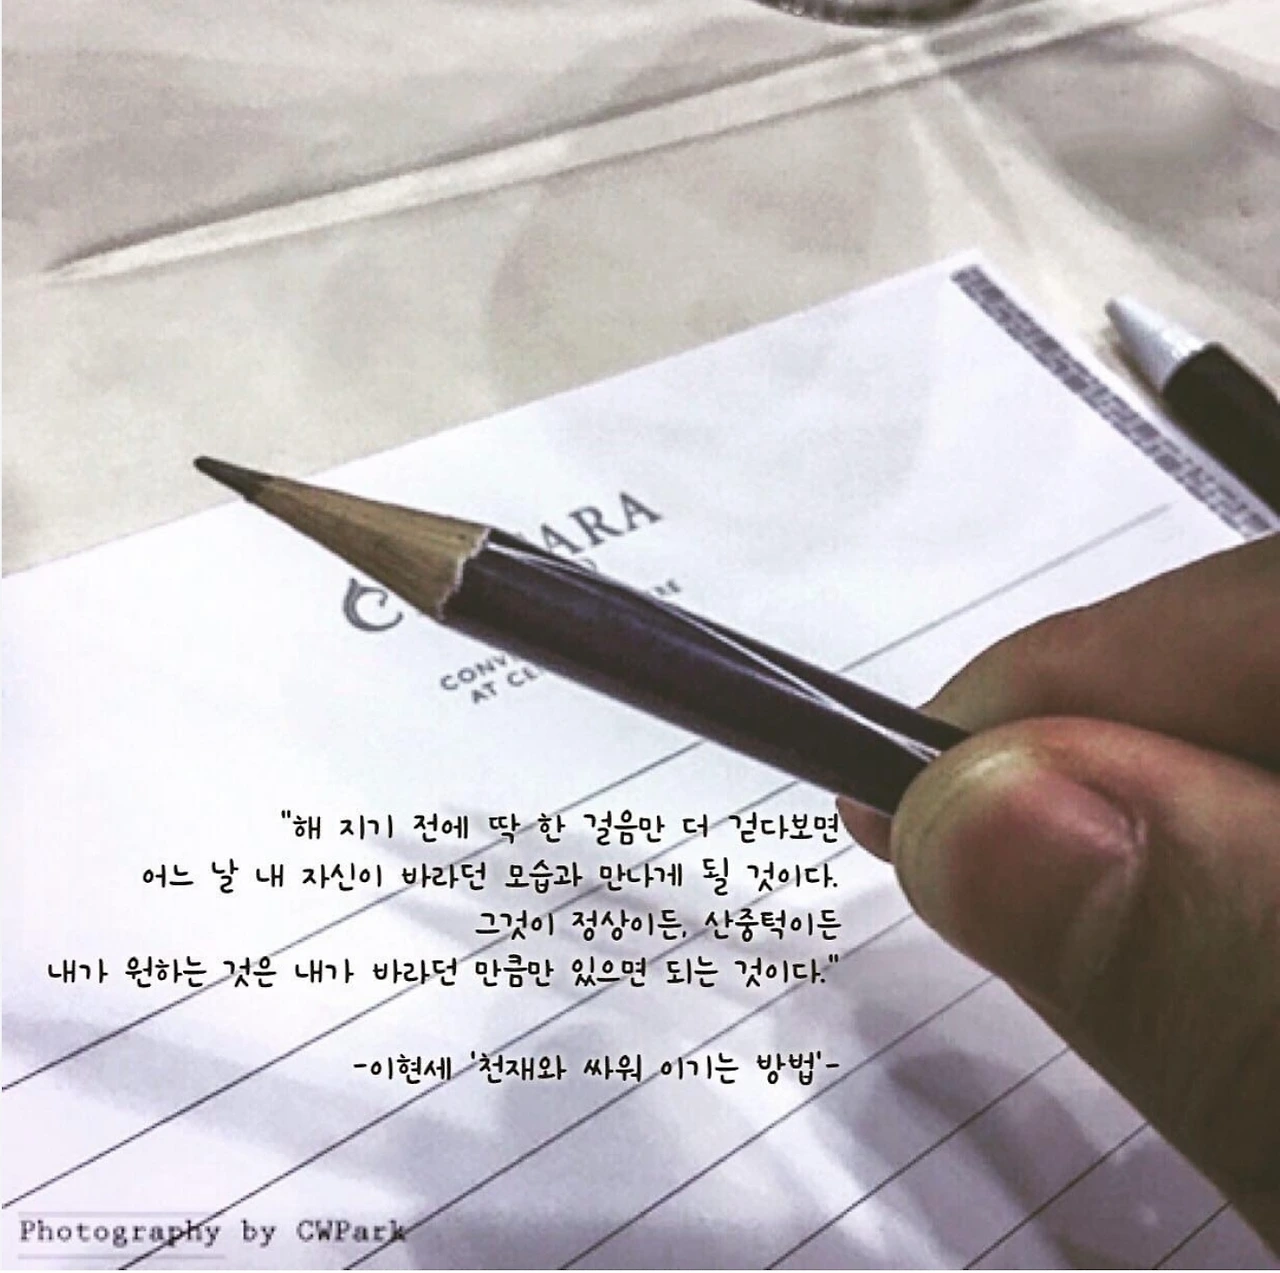 ARA
CONV
AT CE
"해 지기 전에 딱 한 걸음만 더 걷다보면
어느 날 내 자신이 바라던 모습과 만나게 될 것이다.
그것이 정상이든, 산중턱이든
내가 원하는 것은 내가 바라던 만큼만 있으면 되는 것이다."
-이현세 '천재와 싸워 이기는 방법'-
Photography by CWPark